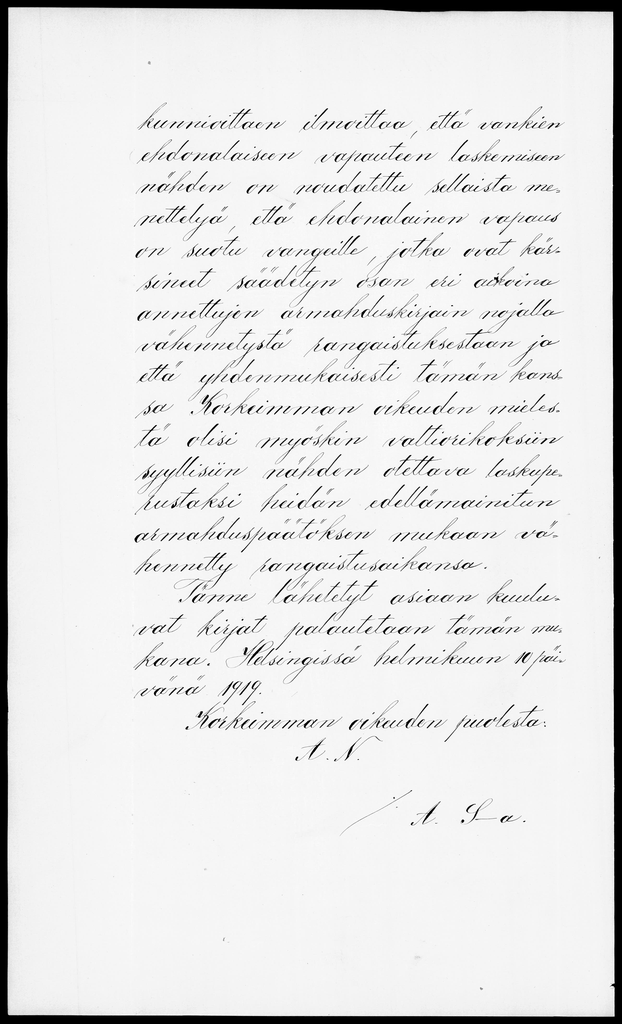 kunnioittaen ilmoittaa, että vankien
ehdonalaiseen vapauteen laskemiseen
nähden on noudatettu sellaista me-
nettelyä, että ehdonalainen vapaus
on suotu vangeille, jotka ovat kär-
sineet säädetyn osan eri aikoina
annettujen armahduskirjain nojalla
vähennetystä rangaistuksestaan ja
että yhdenmukaisesti tämän kans-
sa Korkeimman oikeuden mieles-
tä olisi myöskin valtiorikoksiin
syyllisiin nähden otettava laskupe-
rustaksi heidän edellämainitun
armahduspäätöksen mukaan vä-
hennetty rangaistusaikansa.
Tänne lähetetyt asiaan kuulu-
vat kirjat palautetaan tämän mu-
kana. Helsingissä helmikuun 10 päi-
vänä 1919.
Korkeimman oikeuden puolesta:
A. N.
/. A. S-a.